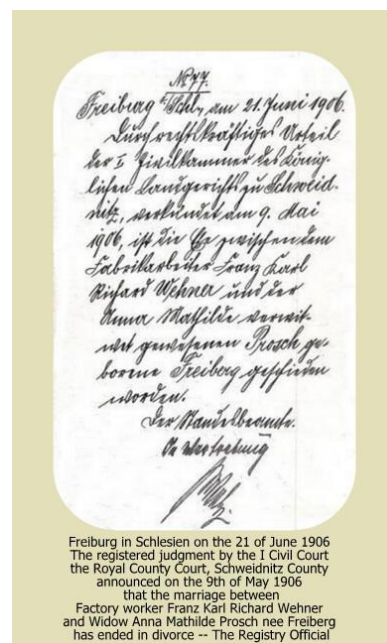 No 77.
Freiburg i/Schl., am 21. Juni 1906.
Durch rechtskräftiges Urteil
der I Zivilkammer des König-
lichen Landgerichts zu Schweid-
nitz, verkündet am 9. Mai
1906, ist die Ehe zwischen dem
Fabrikarbeiter Franz Karl
Richard Wehner und der
Anna Mathilde verwit-
wet gewesenen Prosch ge-
borene Freiberg geschieden
worden.
Der Standesbeamte.
In Vertretung
Freiburg in Schlesien on the 21 of June 1906
The registered judgment by the I Civil Court
the Royal County Court, Schweidnitz County
announced on the 9th of May 1906
that the marriage between
Factory worker Franz Karl Richard Wehner
and Widow Anna Mathilde Prosch nee Freiberg
has ended in divorce -- The Registry Official